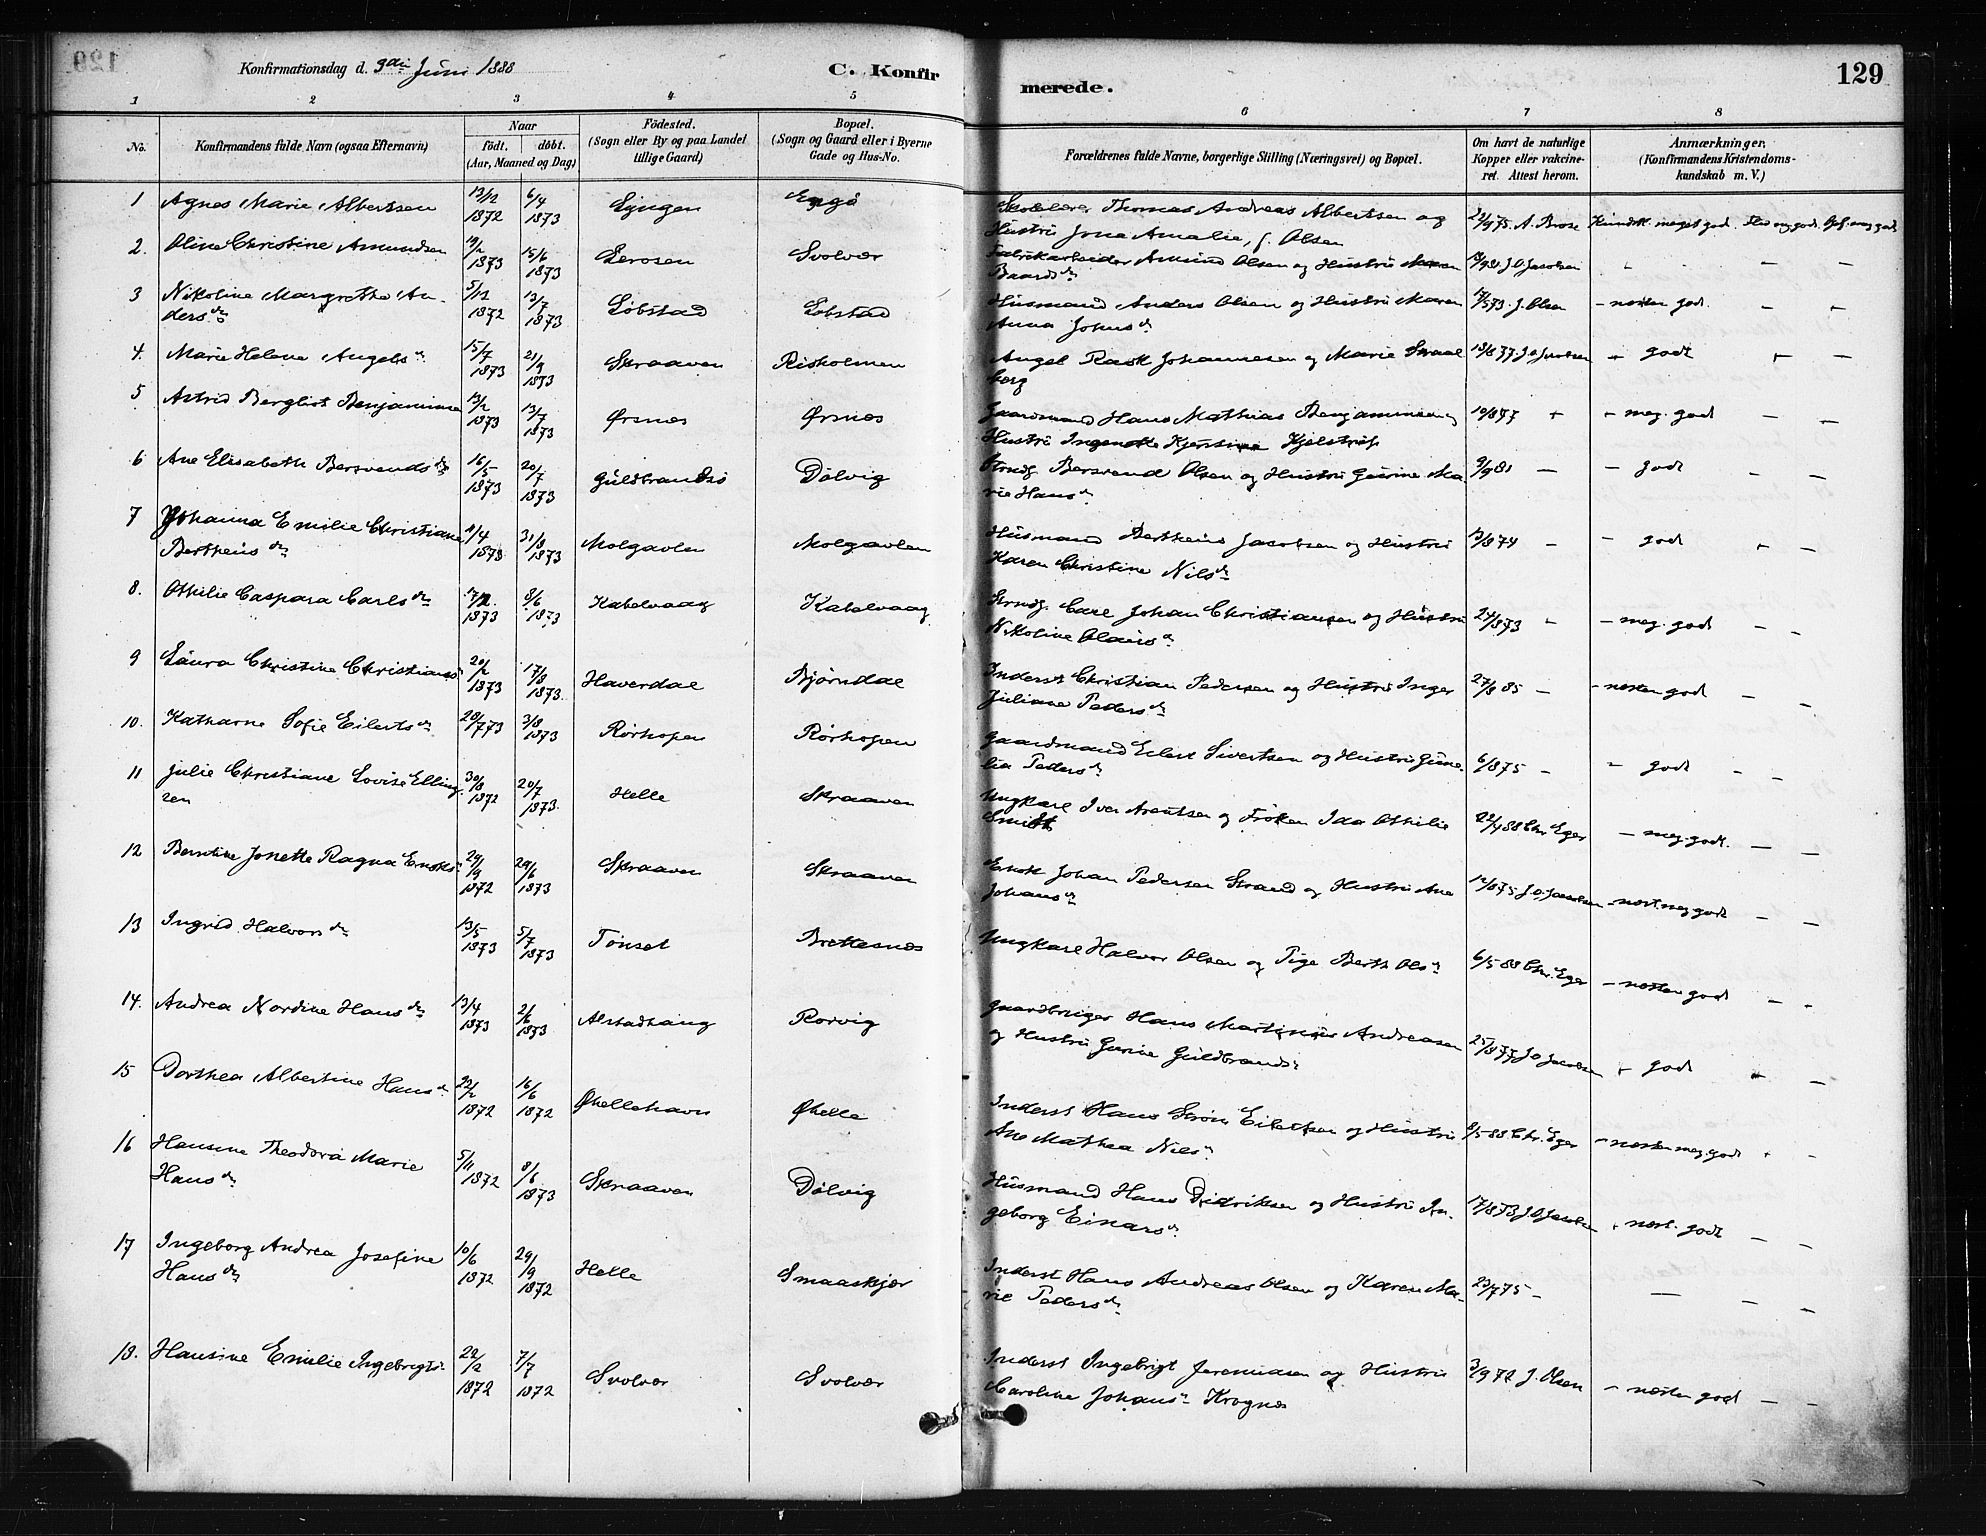 Konfirmationsdag d. 9de Juni 1888
C. Konfir
merede.
129
1 2 3 4 5 6 7 8
No.
Konfirmandens fulde Navn (ogsaa Efternavn)
Naar
født. døbt.
(Aar, Maaned og Dag)
Fødested.
(Sogn eller By og paa Landet
tillige Gaard)
Bopæl.
(Sogn og Gaard eller i Byerne
Gade og Hus-No.
Forældrenes fulde Navne, borgerlige Stilling (Næringsvei) og Bopæl.
Om havt de naturlige
Kopper eller vakcine-
ret. Attest herom.
Anmærkninger.
(Konfirmandens Kristendoms-
kundskab m. V.)
1 Agnes Marie Albertsen 13/12 1872 6/4 1873 Lyngen Engö
Skolelærer Thomas Andreas Albertsen og
Hustru Jona Amalie, f. Olsen
22/9 75. A. Brose Kundsk. meget god. Flid mg. god.
2. Oline Christine Amundsen 19/2 1873 15/6 1873 Lerosen Svolvær
Fabrikarbeider Amund Olsen og Hustru Maren
Baardsdr
J. O. Jacobsen
3 Nikoline Margrethe An-
dersdr 5/12 1872 13/7 1873 Löbstad Löbstad
Husmand Anders Olsen og Hustru Maren
Anna Johnsdr
17/5 73. J. Olsen – nesten god. – –
4. Marie Helene Angelsdr 15/7 1873 21/9 1873 Skraaven Risholmen
Angel Rask Johannesen og Marie Straal
berg
13/8 77 J. O. Jacobsen – godt
5 Astrid Bergliot Benjaminsen 13/2 1873 13/7 1873 Ørsnes Ørsnes
Gaardmand Hans Mathias Benjaminsen og
Hustru
10/8 77 – meg. god –
6 Ane Elisabeth Bersvendsdr 16/5 1873 20/7 1873 Guldbrandsö Dölvig
Strnds. Bersvend Olsen og Hustru Gurine Ma-
rie Hansdr
9/9 81 – – godt – –
7 Johanna Emilie Christiane
Bertheusdr 11/4 1873 31/8 1873 Molgavlen Molgavlen
Husmand Bertheus Jacobsen og Hustru
Karen Christine Nilsdr
13/8 74 – – god – –
8. Othilie Caspara Carlsdr 17/2 1873 8/6 1873 Kabelvaag Kabelvaag
Strndj. Carl Johan Christiansen og Hustru
Nikoline Olausdr
24/8 73 – – meg. god – –
9 Laura Christine Christians 20/2 1873 17/8 1873. Haverdal Bjørndal
Inderst Christian Pedersen og Hustru Inger
Juliane Pedersdr
27/8 85 – – nesten god – –
10. Katharne Sofie Eilertsdr 20/7 73 3/8 1873 Rørhopen Rørhopen
Gaardmand Eilert Sivertsen og Hustru Gune-
lia Pedersdr
6/8 75 – – godt – –
11 Julie Christiane Lovise Elling-
sen 30/8 1872 20/7 1873. Helle Skraaven
Ungkarl Iver Arentsen og Frøken Ida Othilie
Smidt
22/4 88 Chr. Eger – meg. godt. – –
12 Berntine Jonette Ragna Enoks 29/9 1872 29/6 1873 Skraaven Skraaven
Enok Johan Pedersen Strand og Hustru Ane
Johansdr
12/8 75 J. O. Jacobsen – nest. meg. godt – –
13 Ingrid Halvorsdr 13/5 1873 5/7 1873 Tønset Brettesnes
Ungkarl Halvor Olsen og Pige Berth Olsdr
6/5 88 Chr. Eger – nesten god – –
14. Andrea Nordine Hansdr 13/4 1873 2/6 1873 Alstadhaug Rorvig
Gaardbruger Hans Martinius Andreasen
og Hustru Gurine Guldbrands
25/8 77 J. O. Jacobsen – god – –
15 Dorthea Albertine Hansdr 22/2 1872 16/6 1872 Øhellehavn Øhelle
Inderst Hans Strøm Eilertsen og Hustru
Ane Mathea Nils
8/5 88 Chr. Eger – nesten meg. godt – –
16 Hansine Theodora Marie
Hansdr 5/11 1872 8/6 1873 Skraaven Dölvig
Husmand Hans Didriksen og Hustru In-
geborg Einarsdr
17/8 73 J. O. Jacobsen – nest. godt – –
17 Ingeborg Andrea Josefine
Hansdr 10/6 1872 29/9 1872 Helle Smaaskjær
Inderst Hans Andreas Olsen og Karen Ma-
rie Pedersdr
23/7 75 – – – –
18. Hansine Emilie Ingebrigts 22/2 1872 7/7 1872 Svolvær Svolvær
Inderst Ingebrigt Jeremiasen og Hustru
Caroline Johansdr Krognes
3/9 72 J. Olsen – nesten god – –